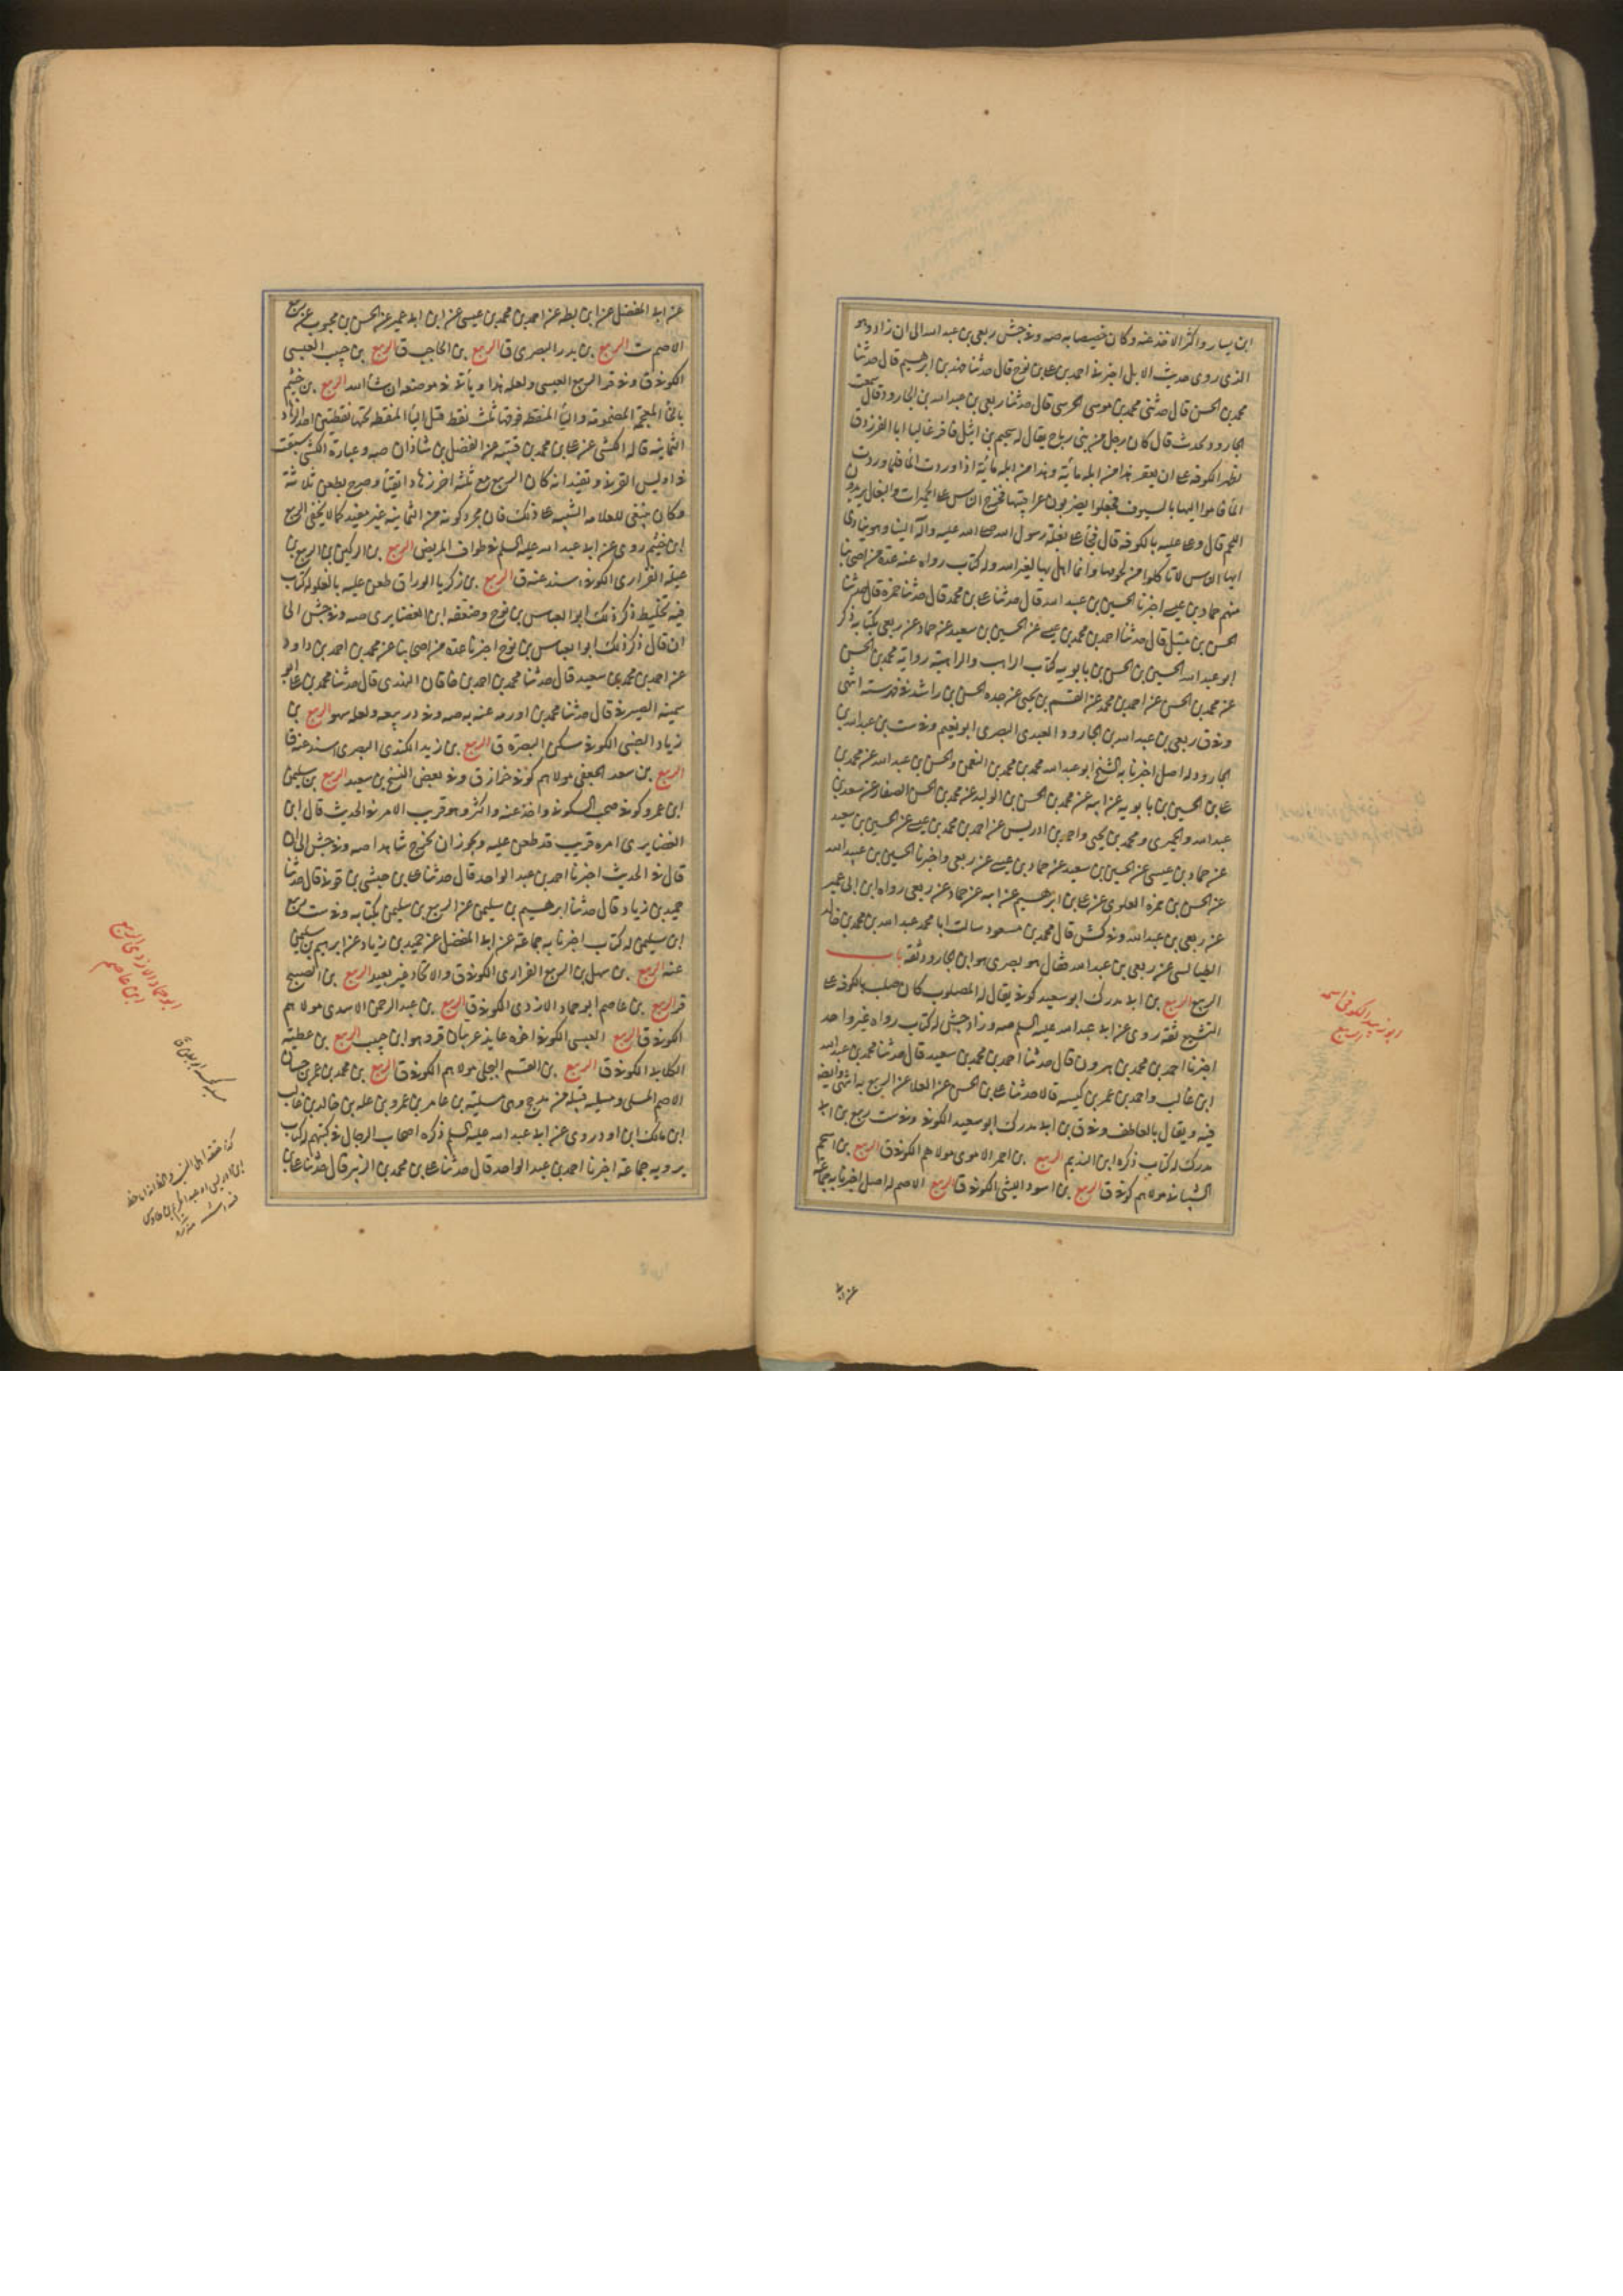 ابن يسار واكثر الاخذ عنه وكان خصيصا به صه وفى جش ربعى بن عبد الله الى ان زاد وهو
الذى روى حديث الابل اخبرنى احمد بن على بن نوح قال حدثنا فهد بن ابرهيم قال حدثنا
محمد بن الحسن قال حدثنى محمد بن موسى الحرسى قال حدثنا ربعى بن عبد الله بن الجارود قال سمعت
الجارود يحدث قال كان رجل من بنى رياح يقال له سحيم بن اثيل فاخر غالبا ابا الفرزدق
بظهر الكوفة على ان يعقر هذا من ابله مائة وهذا من ابله مائة اذا وردت الماء فلما وردت
الماء قاموا اليها بالسيوف فجعلوا يضربون عراقيبها فخرج الناس على الحميرات والبغال يريدون
اللحم قال وعلى عليه بالكوفة قال فجاء على بغلة رسول الله صلى الله عليه وآله الينا وهو ينادى
ايها الناس لا تاكلوا من لحومها وانما اهل بها لغير الله وله كتاب رواه عنه عدة من اصحابنا
منهم حماد بن عيسى اخبرنا الحسين بن عبيد الله قال حدثنا على بن محمد قال حدثنا حمزة قال حدثنا
الحسن بن متيل قال حدثنا احمد بن محمد بن عيسى عن الحسين بن سعيد عن حماد عن ربعى بكتابه ذكر
ابو عبد الله الحسين بن الحسن بن بابويه كتاب الراهب والراهبة رواية محمد بن الحسن
عن محمد بن الحسن عن احمد بن محمد عن القسم بن يحيى عن جده الحسن بن راشد فى فهرسته انتهى
وفى ق ربعى بن عبد الله بن الجارود العبدى البصرى ابو نعيم وفى ست بن عبد الله بن
الجارود له اصل اخبرنا به الشيخ ابو عبد الله محمد بن محمد بن النعمن والحسين بن عبيد الله عن محمد بن
على بن الحسين بن بابويه عن ابيه عن محمد بن الحسن بن الوليد عن محمد بن الحسن الصفار عن سعد بن
عبد الله والحميرى ومحمد بن يحيى واحمد بن ادريس عن احمد بن محمد بن عيسى عن الحسين بن سعيد
عن حماد بن عيسى عن الحسين بن سعيد عن حماد بن عيسى عن ربعى واخبرنا الحسين بن عبيد الله
عن الحسن بن حمزة العلوى عن على بن ابرهيم عن ابيه عن حماد عن ربعى رواه ابن ابى عمير
عن ربعى بن عبد الله وفى كش قال محمد بن مسعود سالت ابا محمد عبد الله بن محمد بن خالد
الطيالسى عن ربعى بن عبد الله فقال هو بصرى هو ابن الجارود ثقة باب
الربيع الربيع بن ابى مدرك ابو سعيد كوفى يقال له المصلوب كان صلب بالكوفة على
التشيع ثقة روى عن ابى عبد الله عليه السلم صه وزاد جش له كتاب رواه غير واحد
اخبرنا احمد بن محمد بن هرون قال حدثنا احمد بن محمد بن سعيد قال حدثنا محمد بن عبد الله
ابن غالب واحمد بن عمر بن كيسبة قالا حدثنا على بن الحسن عن العلا عن الربيع به انتهى
فيه ويقال بالعاطف وفى ق بن ابى مدرك ابو سعيد الكوفى وفى ست ربيع بن ابى
مدرك له كتاب ذكره ابن النديم الربيع بن احمر الاموى مولاهم الكوفى ق الربيع بن اسحم
الشيبانى مولاهم كوفى ق الربيع بن اسود الليثى الكوفى ق الربيع الاصم له اصل اخبرنا به جماعة
عن ابى
ابو زبيد الكوفى اسمه
ربيع
عن ابى المفضل عن ابن بطه عن احمد بن محمد بن عيسى عن ابن ابى عمير عن الحسن بن محبوب عن ربيع
الاصم ست الربيع بن بدر البصرى ق الربيع بن الحاجب ق الربيع بن حبيب العبسى
الكوفى ق وفى قر الربيع العبسى ولعله هذا وياتى فى موضعه ان شاء الله الربيع بن خثيم
بالخاء المعجمة المضمومة والثاء المنقطة فوقها ثلث نقط قبل الياء المنقطة تحتها نقطتين احد الزهاد
الثمانية قاله الكشى عن على بن محمد بن قتيبة عن الفضل بن شاذان صه وعبارة الكشى سبقت
فى اويس القرنى وتفيد انه كان الربيع مع ثلثه اخر زهادا اتقياء وصرح بطعن ثلاثة
وكان ينبغى للعلامه التنبيه على ذلك فان مجرد كونه من الثمانية غير مفيد كما لا يخفى الربيع
ابن خثيم روى عن ابى عبد الله عليه السلم فى طواف المريض الربيع بن الركين بن الربيع بن
عميلة الفزارى الكوفى اسند عنه ق الربيع بن زكريا الوراق طعن عليه بالغلو له كتاب
فيه تخليط ذكر ذلك ابو العباس بن نوح وضعفه ابن الغضايرى صه وفى جش الى
ان قال ذكر ذلك ابو العباس بن نوح اخبرنا عدة من اصحابنا عن محمد بن احمد بن داود
عن احمد بن محمد بن سعيد قال حدثنا محمد بن احمد بن خاقان النهدى قال حدثنا محمد بن على ابو
سمينة الصيرفى قال حدثنا محمد بن اورمه عنه به صه وفى در ربيعه ولعله سهو الربيع بن
زياد الضبى الكوفى سكن البصرة ق الربيع بن زيد الكندى البصرى اسند عنه ق
الربيع بن سعد الجعفى مولاهم كوفى خزاز ق وفى بعض النسخ بن سعيد الربيع بن سليمن
ابن عمرو كوفى صحب السكونى واخذ عنه واكثر وهو قريب الامر فى الحديث قال ابن
الغضايرى امره قريب قد طعن عليه ويجوز ان يخرج شاهدا صه وفى جش الى ان
قال فى الحديث اخبرنا احمد بن عبد الواحد قال حدثنا على بن حبشى بن قونى قال حدثنا
حميد بن زياد قال حدثنا ابرهيم بن سليمن عن الربيع بن سليمن بكتابه وفى ست ربيع
ابن سليمن له كتاب اخبرنا به جماعة عن ابى المفضل عن حميد بن زياد عن ابرهيم بن سليمن
عنه الربيع بن سهل بن الربيع الفزارى الكوفى ق والاتحاد غير بعيد الربيع بن الصبيح
قر الربيع بن عاصم ابو حماد الازدى الكوفى ق الربيع بن عبد الرحمن الاسدى مولاهم
الكوفى ق الربيع العبسى الكوفى اخوه عايذ عربيان قر وهو ابن حبيب الربيع بن عطية
الكلابى الكوفى ق الربيع بن القسم البجلى مولاهم الكوفى ق الربيع بن محمد بن عمر بن حسان
الاصم المسلى ومسيله قبيلة من مذحج وهى مسلية بن عامر بن عمرو بن عله بن خالد بن
ابن مالك ابن اود روى عن ابى عبد الله عليه السلم ذكره اصحاب الرجال فى كتبهم له كتاب
يرويه جماعة اخبرنا احمد بن عبد الواحد قال حدثنا على بن محمد بن الزبير قال حدثنا على بن
ابو حماد الازدى الربيع
ابن عاصم